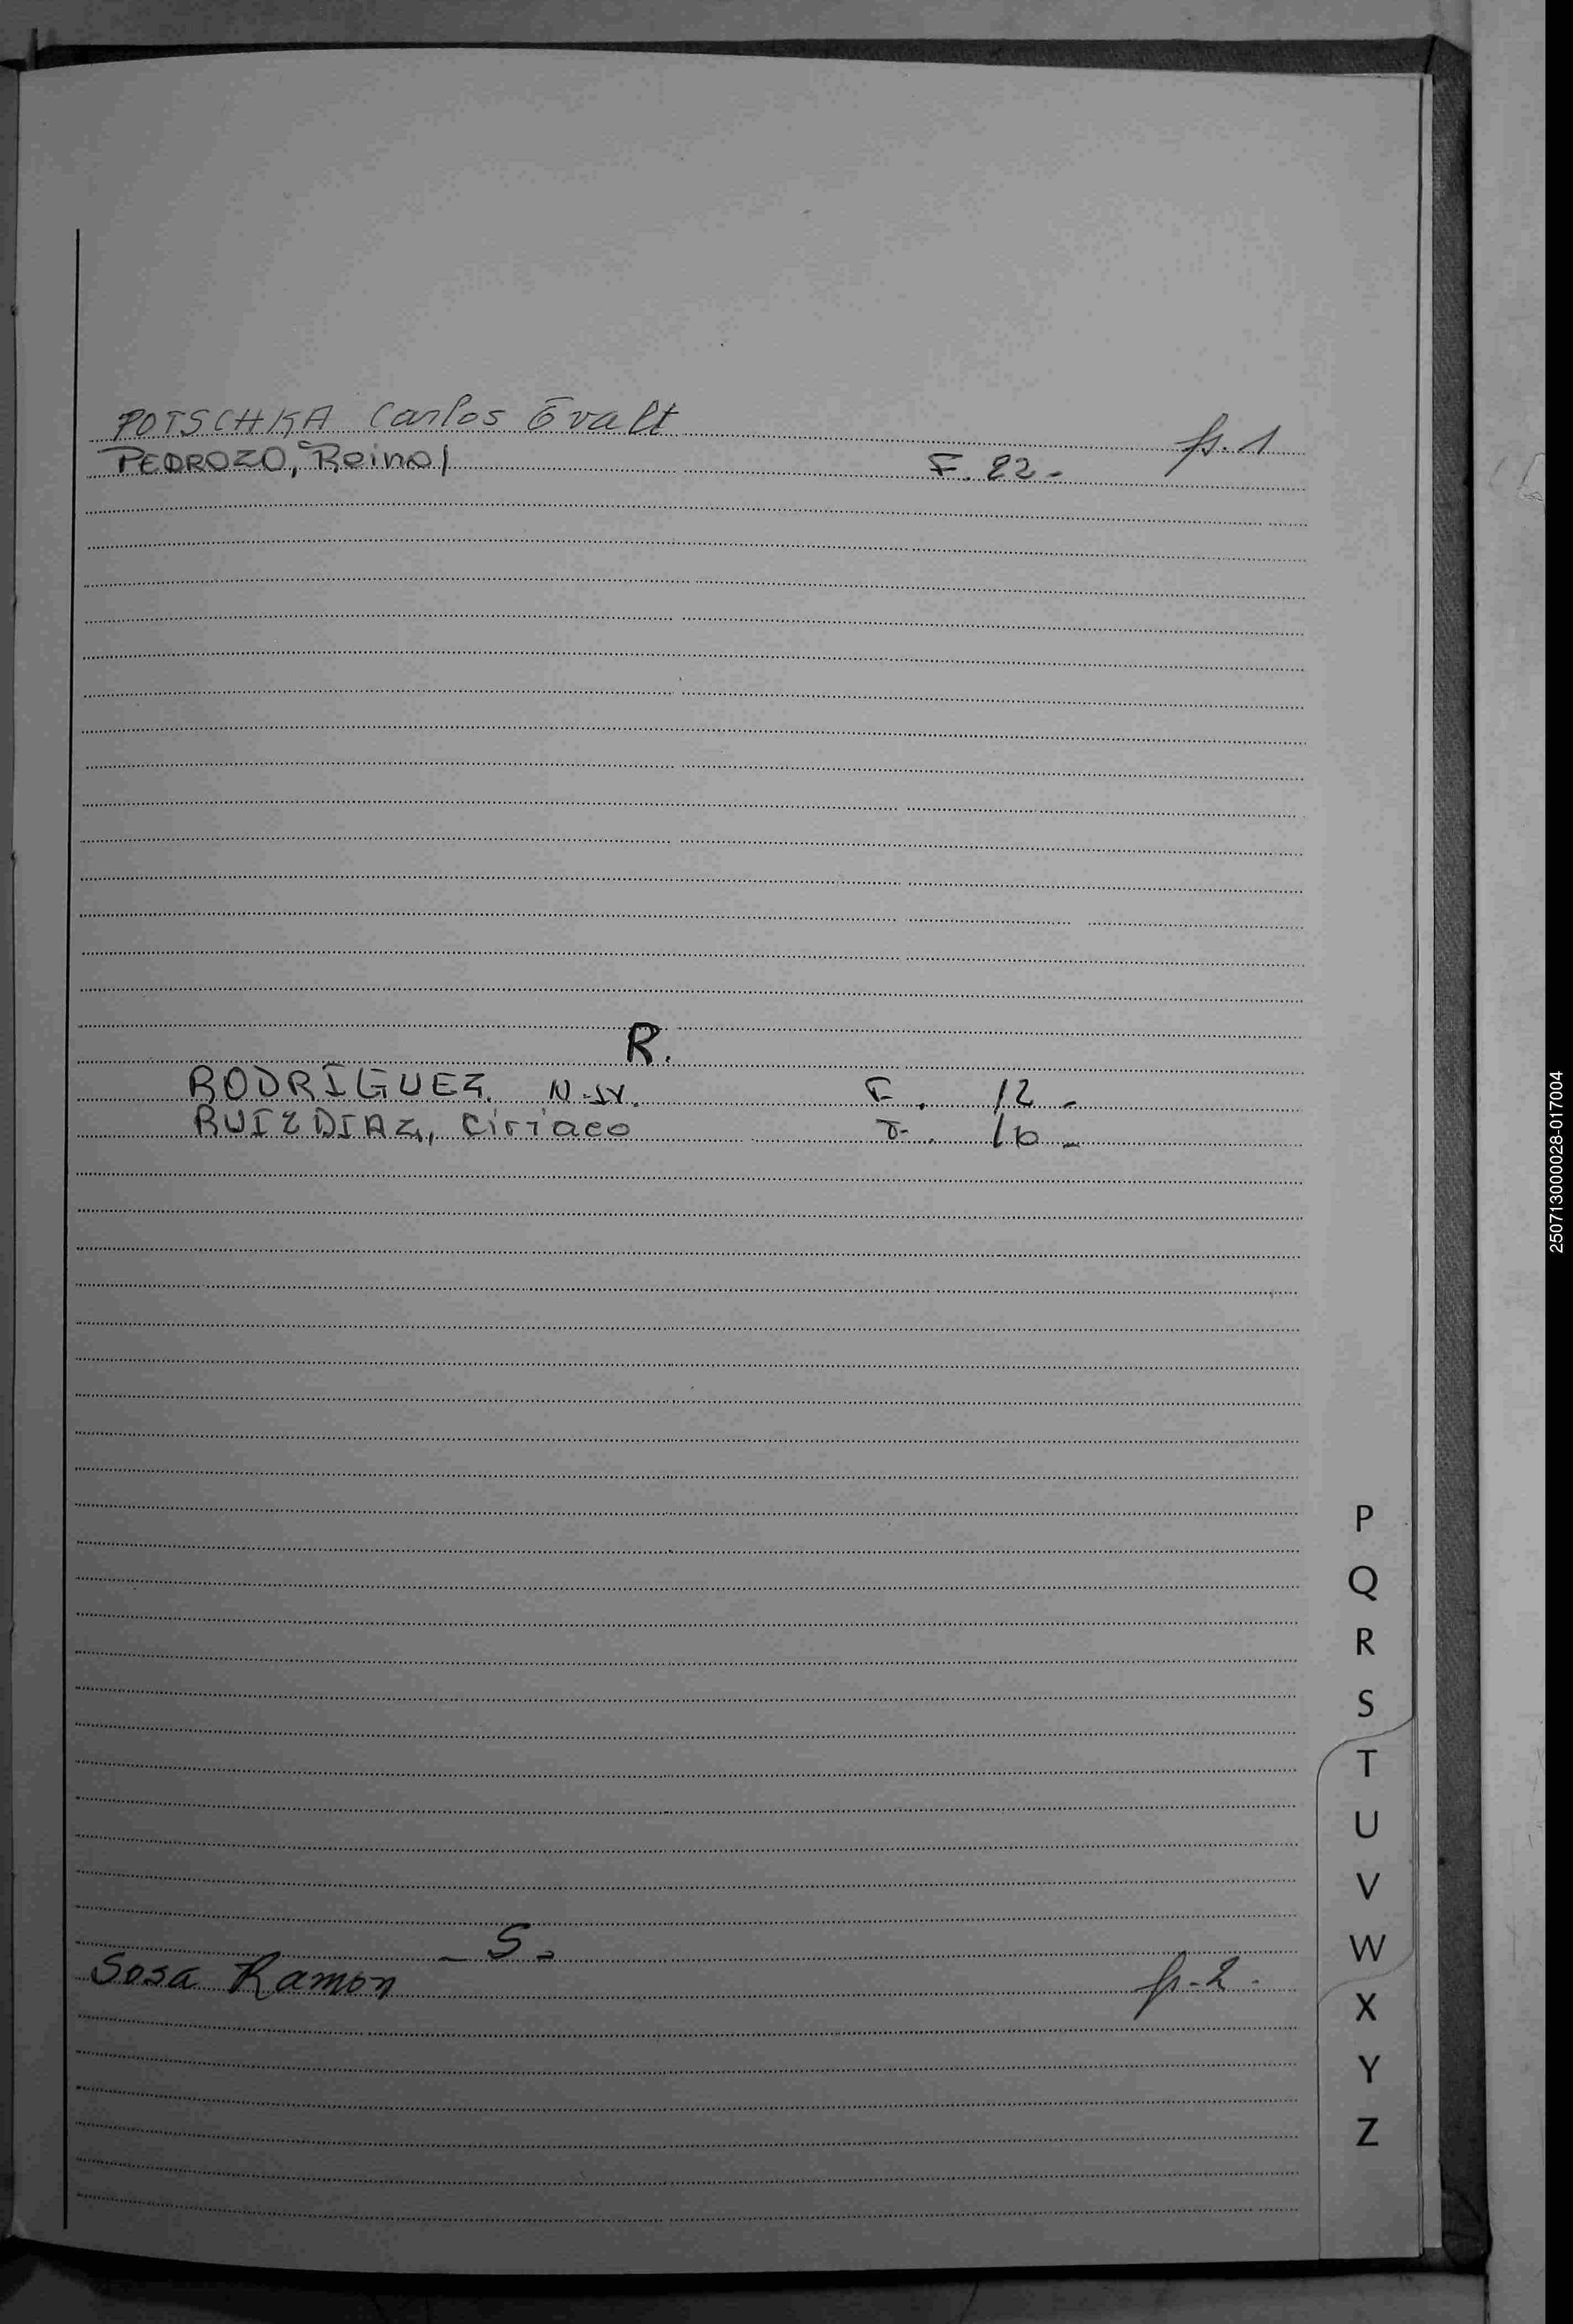 POTSCHKA Carlos Evalt fs. 1
PEDROZO, Reinol F. 22-
R.
RODRÍGUEZ. N-N. F. 12-
RUIZ DIAZ, Ciriaco F. 16-
- S -
Sosa Ramon fs-2-
P
Q
R
S
T
U
V
W
X
Y
Z
250713000028-017004